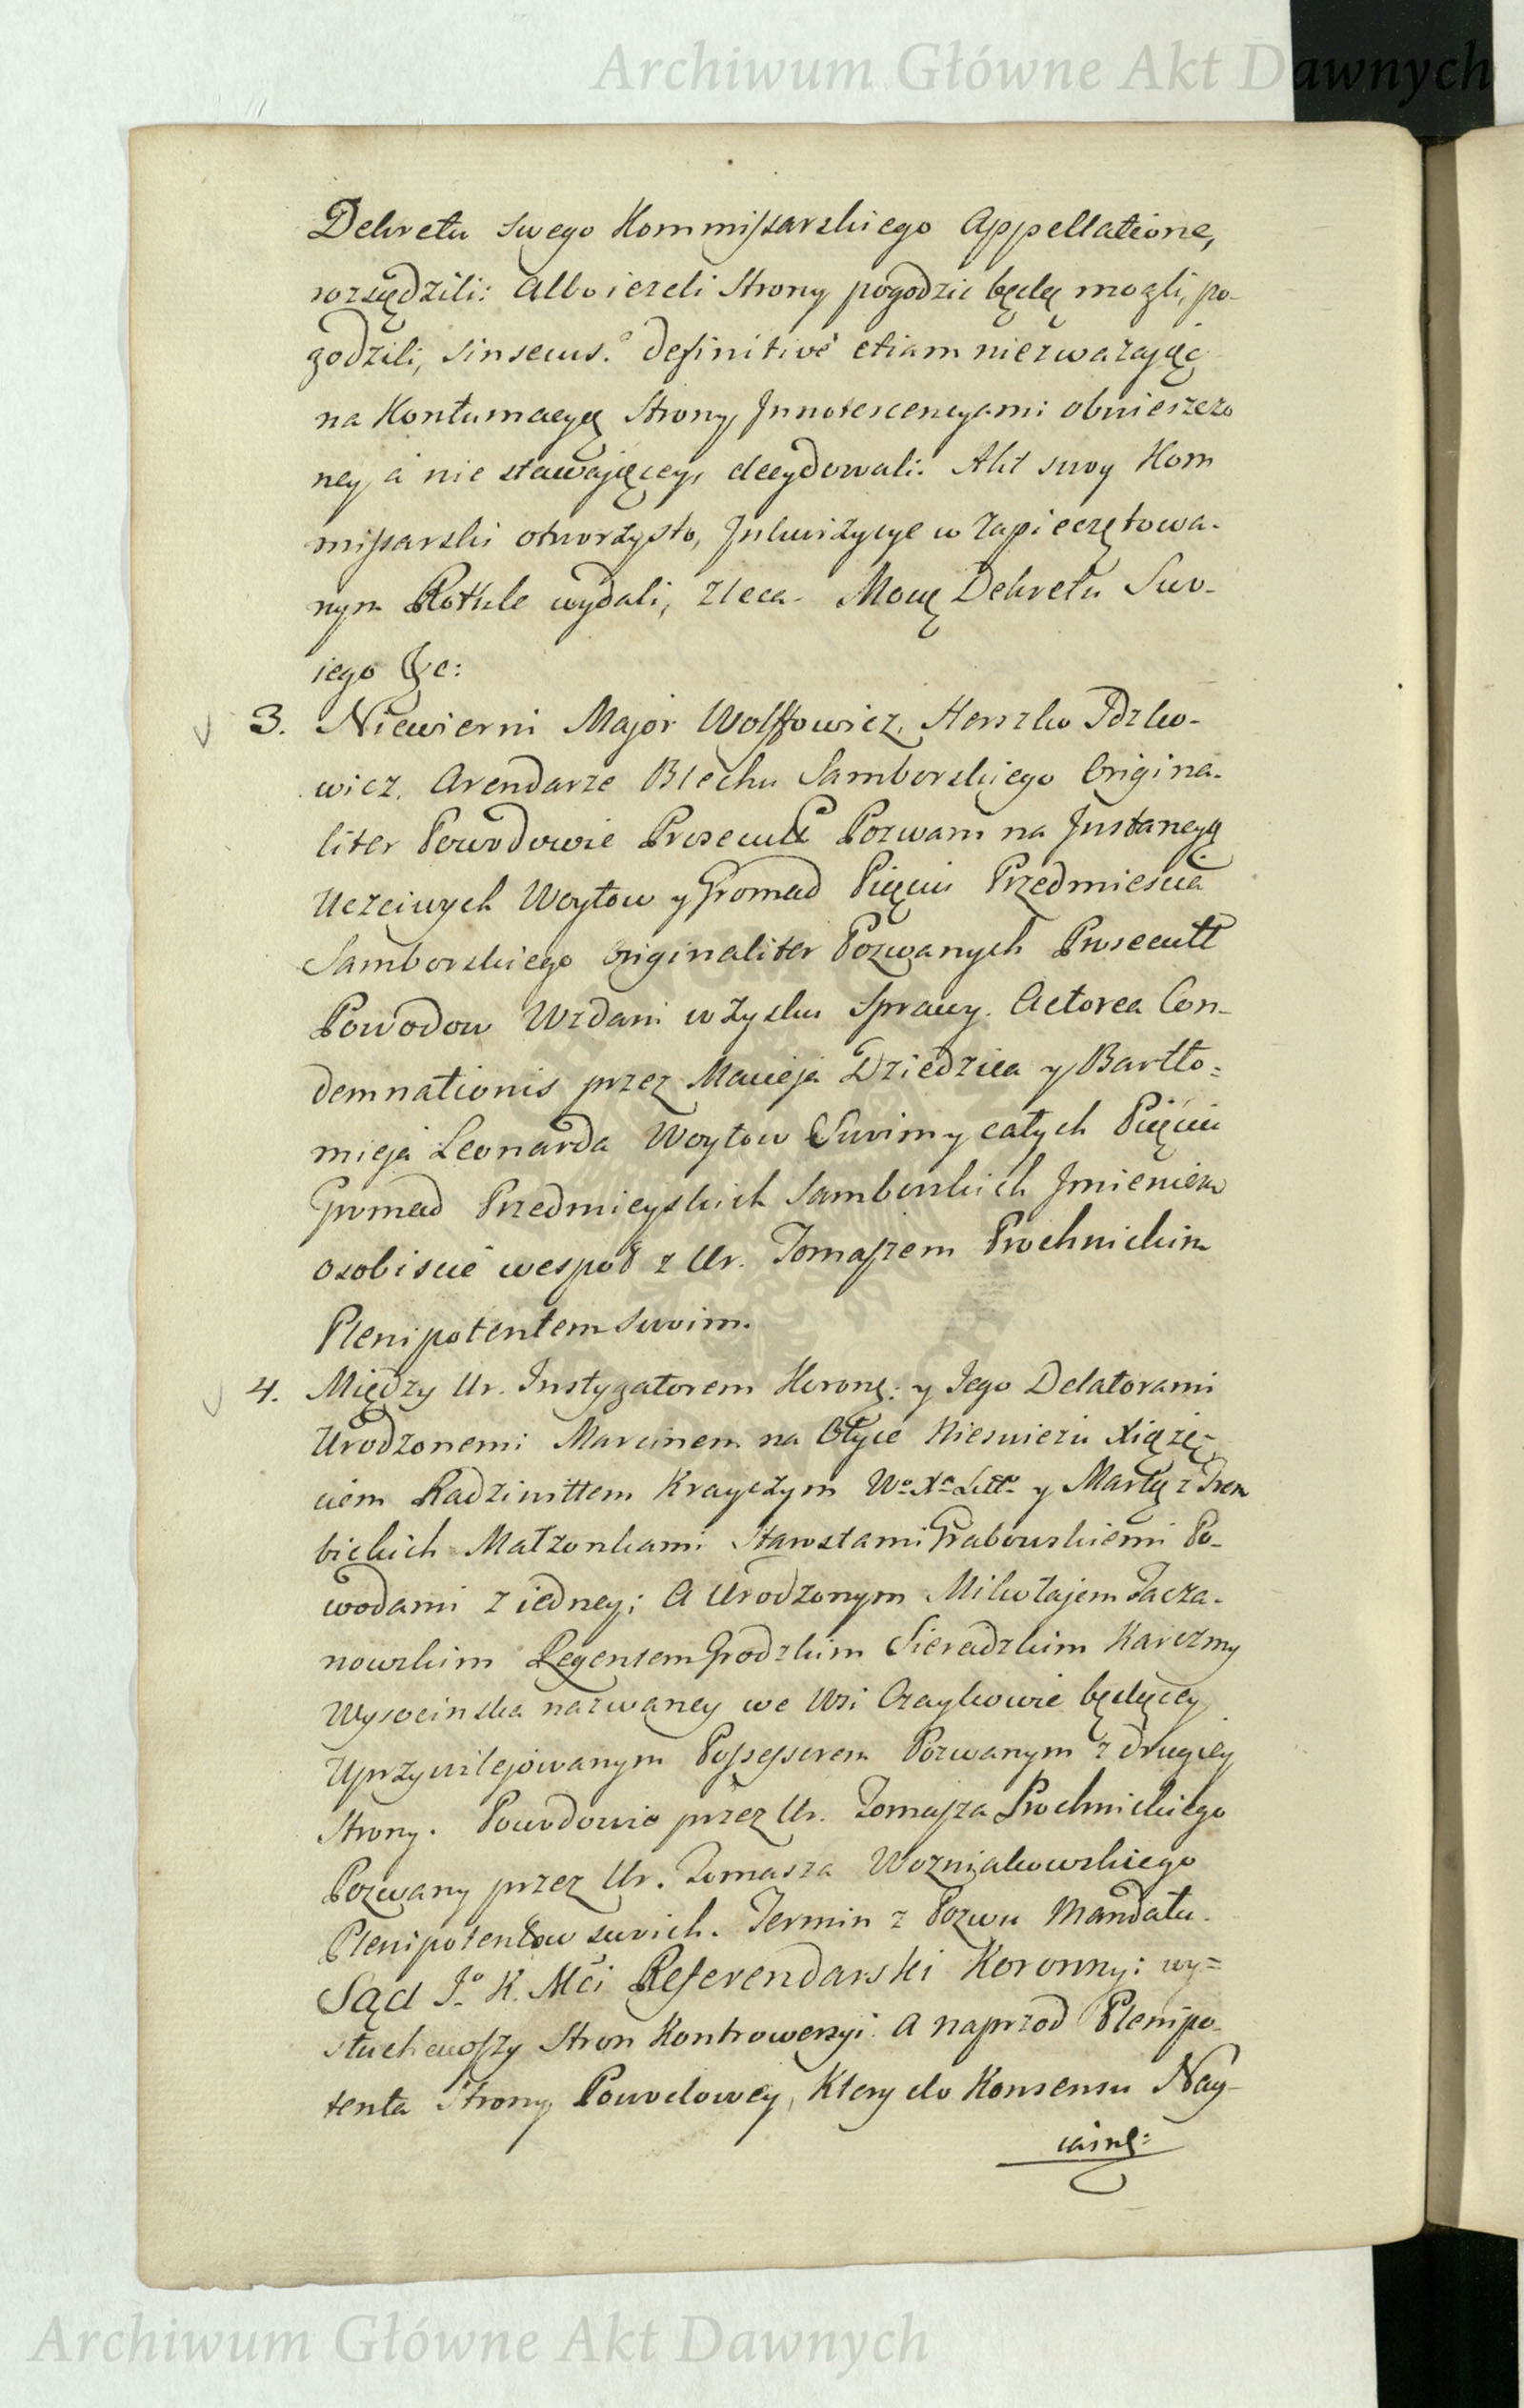 Archiwum Główne Akt Dawnych
Dekretu swego Kommissarskiego Appellatione,
rozsądzili: albo ieżeli Strony pogodzić będą mogli, po-
godzili, sin secus. definitivé etiam niezważaiąc
na Kontumacyą Strony, Innotescencyami obwieszczo
ney, a nie stawającey, decydowali. Akt swoy Kom
missarski otworzysto, Inkwizycye w zapieczętowa-
nym Rotule wydali, zleca. Mocą Dekretu Swo-
iego &c:
3. Niewierni Major Wolffowicz, Herszko Idzko-
wicz. Arendarze Blechu Samborskiego Origina-
liter Powodowie Prosecutt Pozwani na Instancyą
Uczciwych Woytow y Gromad Pięciu Przedmieścia
Samborskiego Originaliter Pozwanych Prosecutt
Powodow Wzdani w zysku Sprawy. Actorea Con-
demnationis przez Macieja Dziedzica y Bartło=
mieja Leonarda Woytow Swoim y całych Pięciu
Gromad Przedmieyskich Samborskich Imieniem
osobiście wespoł z Ur. Tomaszem Prochnickim
Plenipotentem swoim.
4. Między Ur. Instygatorem Koron: y Jego Delatorami
Urodzonemi Marcinem na Ołyce Nieswieżu Xiążę-
ciem Radziwiłłem Krayczym Wo Xa Litto y Martą z Trem
bickich Małżonkami Starostami Grabowskiemi Po-
wodami z iedney; a Urodzonym Mikołajem Tacza-
nowskim Regensem Grodzkim Sieradzkim Karczmy
Wysocinska nazwaney we Wsi Czaykowie będącey
Uprzywilejowanym Possessorem Pozwanym z drugiey
Strony. Powodowie przez Ur. Tomasza Prochnickiego
Pozwany przez Ur. Tomasza Wozniakowskiego
Plenipotentow swoich. Termin z Pozwu Mandatu.
Sąd Jo K. Mći Referendarski Koronny: wy=
słuchawszy Stron Kontrowersyi: a naprzod Plenipo-
tenta Strony Powodowey, Ktory do Konsensu Nay-
iaśnę:
Archiwum Główne Akt Dawnych